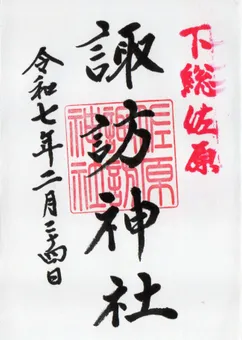 下総佐原
諏訪神社
佐原
諏訪
神社
令和七年二月二十四日